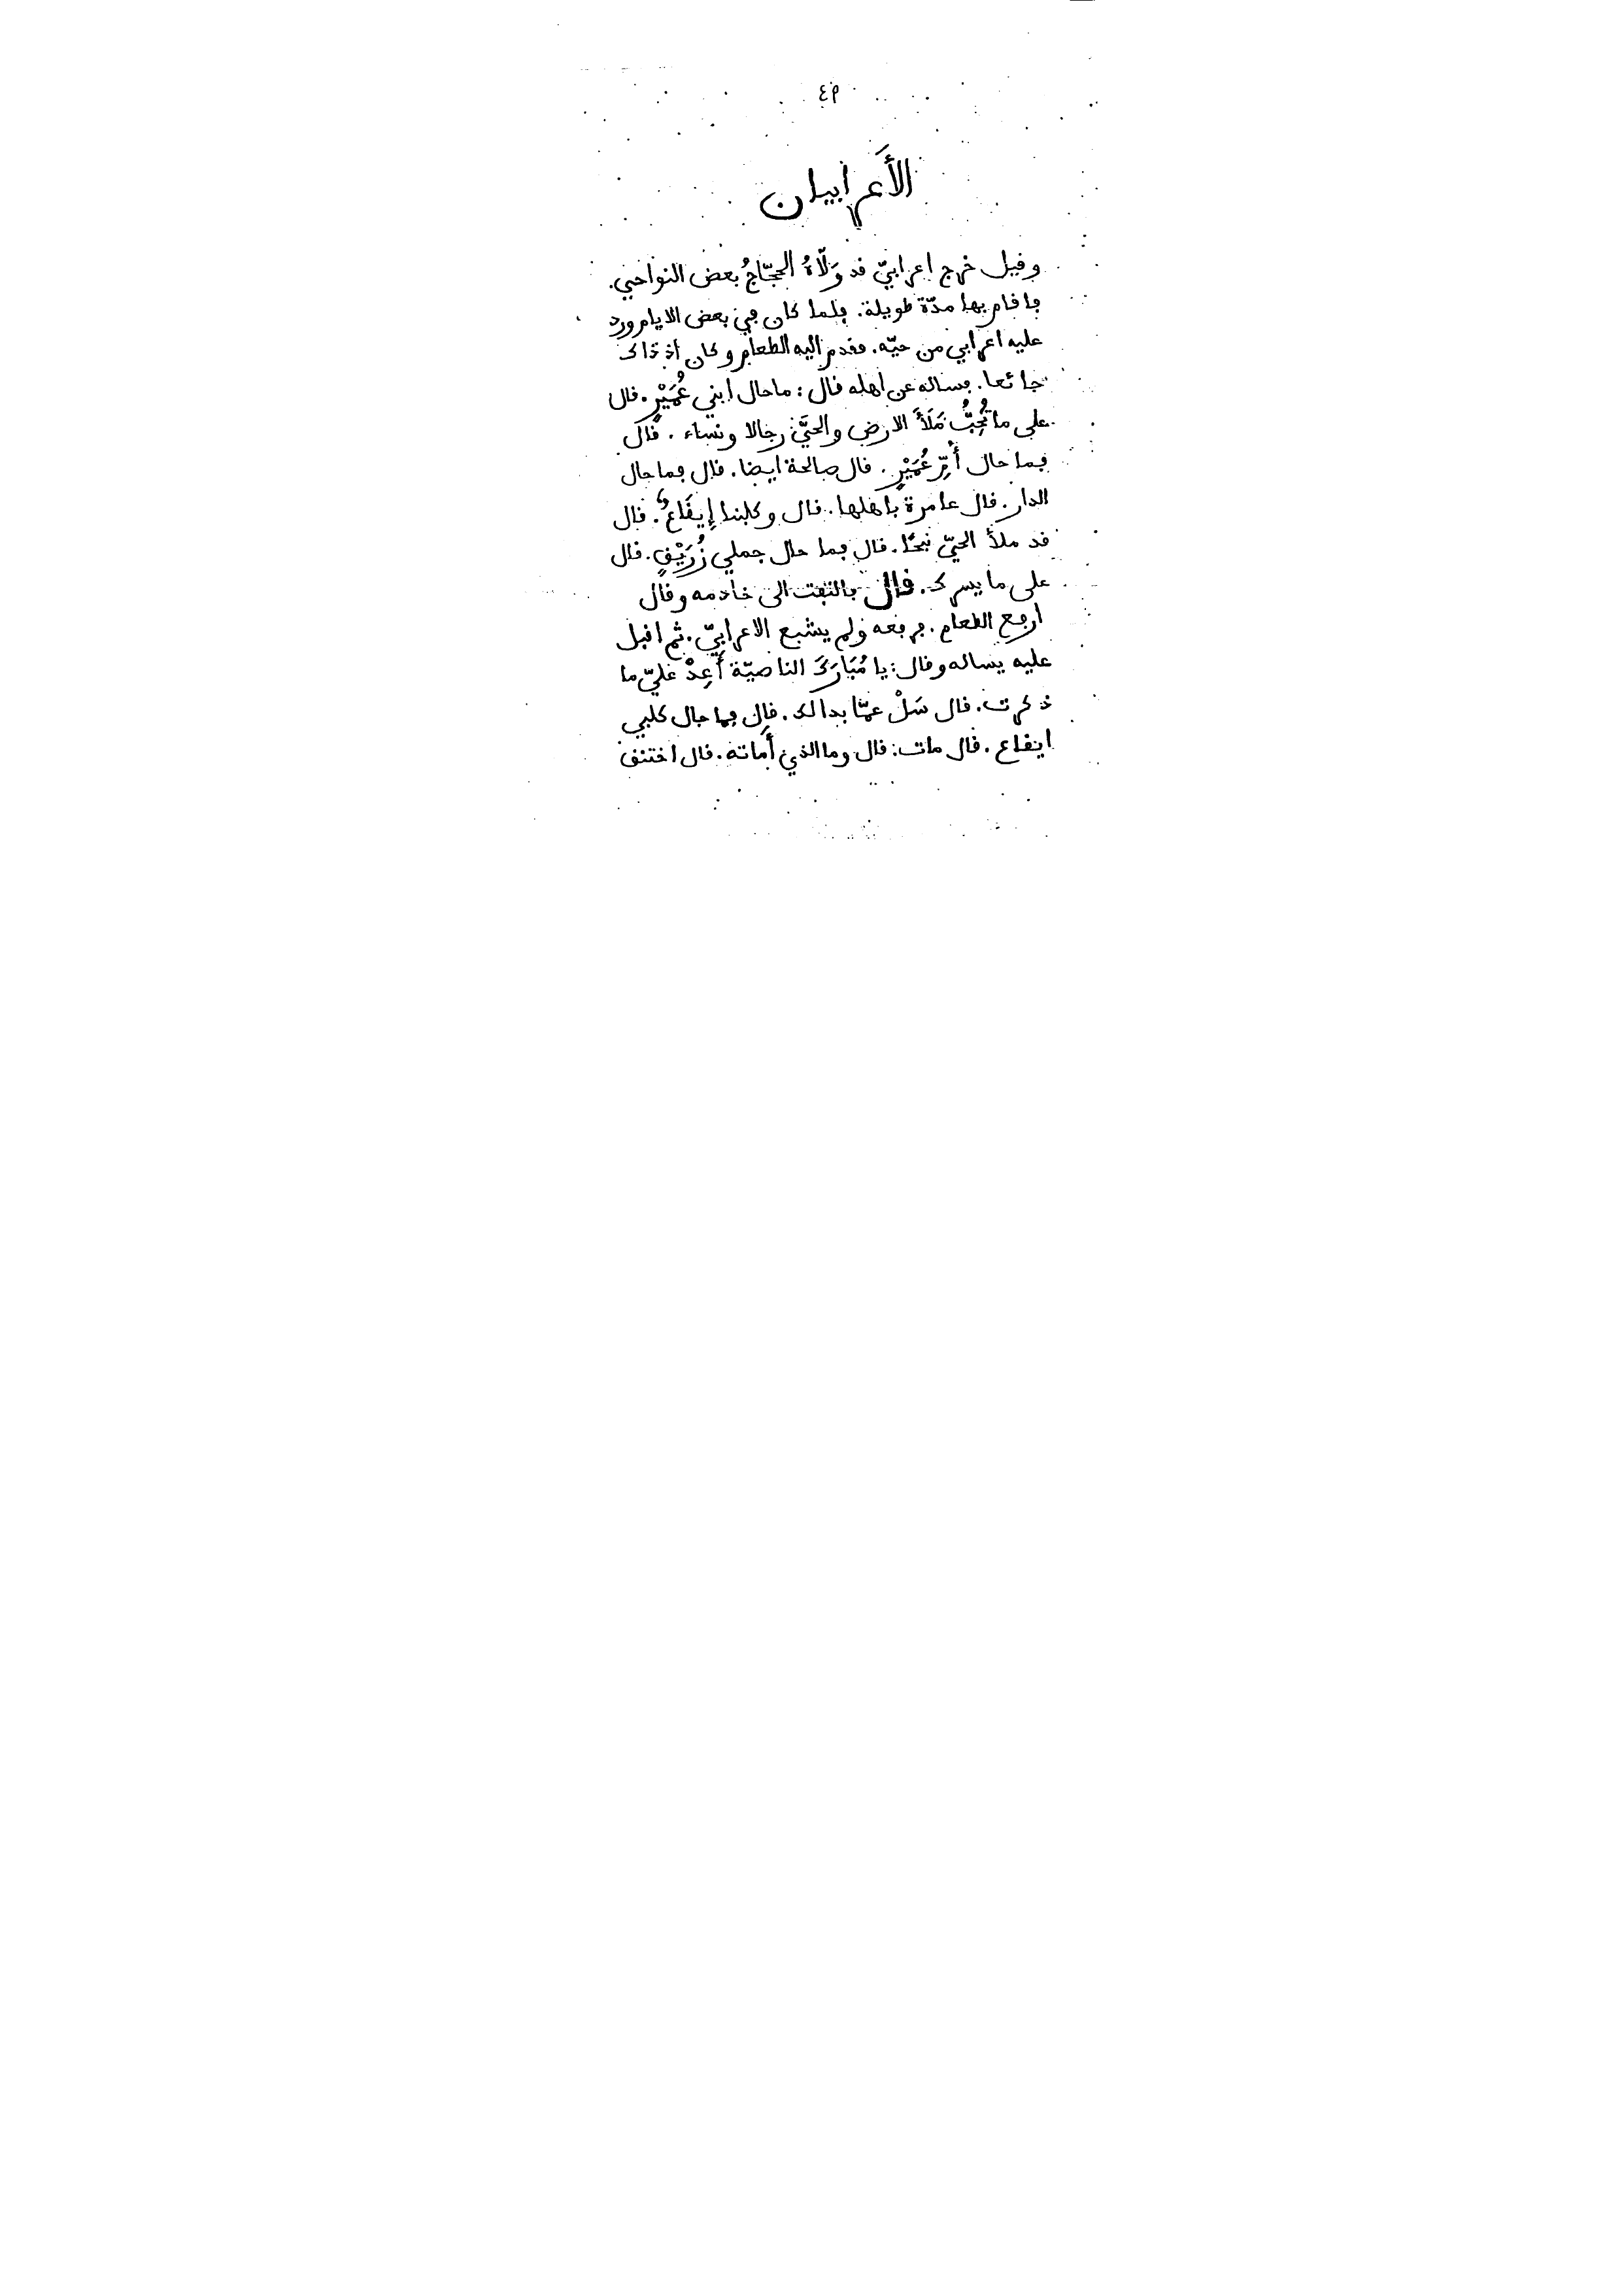 ٤٩
الأَعرابيان
وقيل خرج اعرابيّ قد وَلّاهُ الحجّاجُ بعض النواحي.
فاقام بها مدّة طويلة. فلما كان في بعض الايام ورد
عليه اعرابي من حيّه. فقدم اليه الطعام وكان اذ ذاك
جائعا. فساله عن اهله قال: ما حال ابني عُمَيْرٍ. قال
على ما تُحِبُّ مَلَأَ الارض والحيَّ رجالا ونساء. قال
فما حال أُمِّ عُمَيْرٍ. قال صالحة ايضا. قال فما حال
الدار. قال عامرة باهلها. قال وكلبنا إِيقَاعٌ. قال
قد ملأ الحيّ نبحًا. قال فما حال جملي زُرَيْقٍ. قال
على ما يسرك. قال فالتفت الى خادمه وقال
ارفع الطعام. فرفعه ولم يشبع الاعرابيّ. ثم اقبل
عليه يساله وقال: يا مُبَارَكَ الناصيّة أَعِدْ عليّ ما
ذكرت. قال سَلْ عمّا بدا لك. قال فما حال كلبي
ايقاع. قال مات: قال وما الذي أَماته. قال اختنق